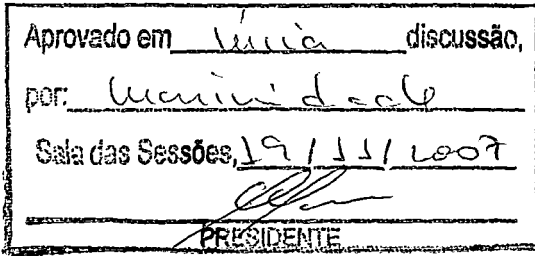 Aprovado em única discussão,
por: unanimidade
Sala das Sessões, 19/11/2007
PRESIDENTE